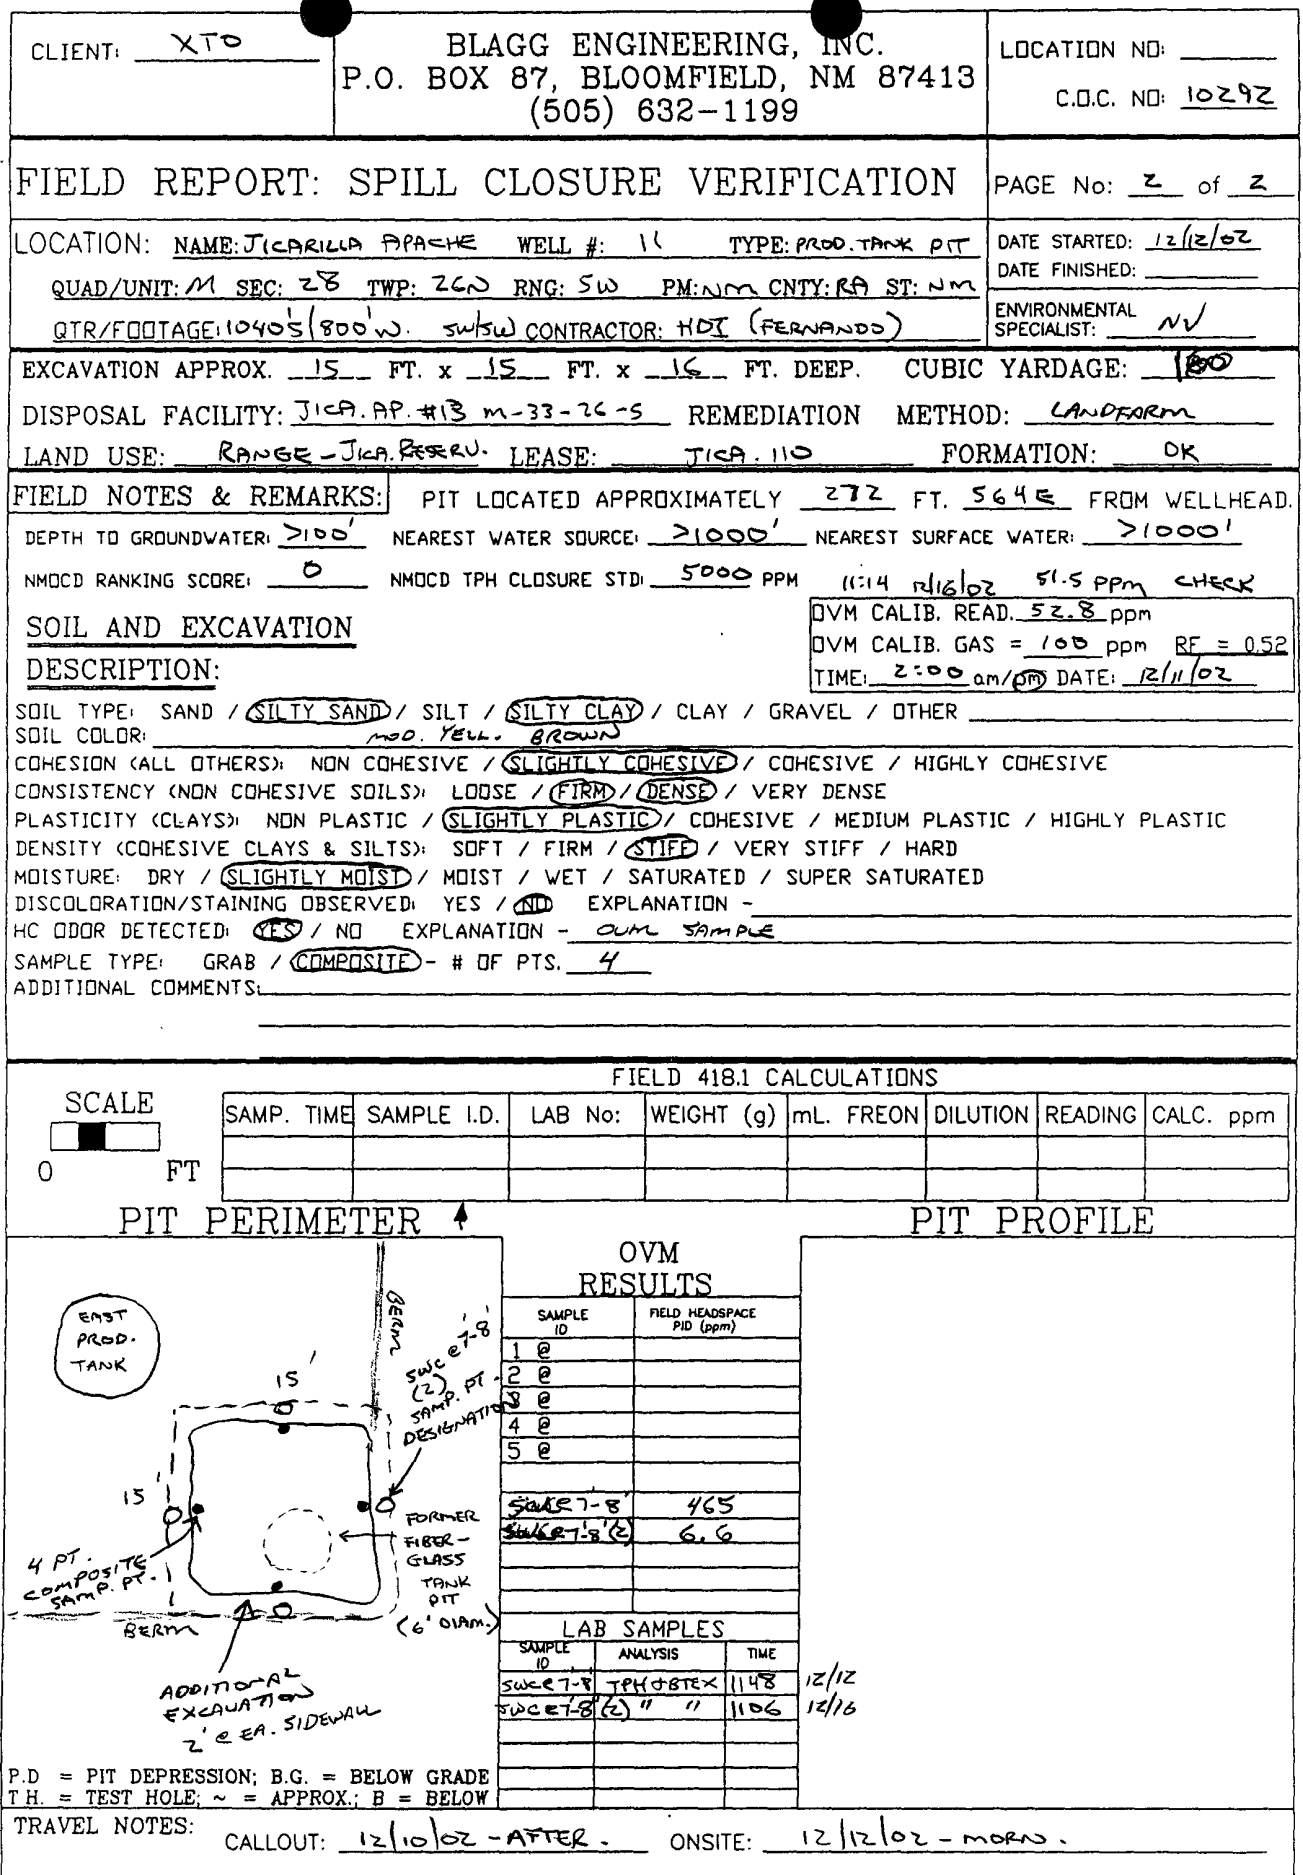 CLIENT: XTO
BLAGG ENGINEERING, INC.
P.O. BOX 87, BLOOMFIELD, NM 87413
(505) 632-1199
LOCATION NO:
C.O.C. NO: 10292
FIELD REPORT: SPILL CLOSURE VERIFICATION
PAGE No: 2 of 2
LOCATION: NAME: JICARILLA APACHE WELL #: 11 TYPE: PROD. TANK PIT
QUAD/UNIT: M SEC: 28 TWP: 26N RNG: 5W PM: NM CNTY: RA ST: NM
QTR/FOOTAGE: 1040'S/800'W. SW/SW CONTRACTOR: HDI (FERNANDO)
DATE STARTED: 12/12/02
DATE FINISHED:
ENVIRONMENTAL
SPECIALIST: NV
EXCAVATION APPROX. 15 FT. x 15 FT. x 16 FT. DEEP. CUBIC YARDAGE:
DISPOSAL FACILITY: JICA. AP. #13 M-33-26-5 REMEDIATION METHOD: LANDFARM
LAND USE: RANGE - JICA. RESERV. LEASE: JICA. 110 FORMATION: DK
FIELD NOTES & REMARKS: PIT LOCATED APPROXIMATELY 272 FT. S64E FROM WELLHEAD.
DEPTH TO GROUNDWATER: >100' NEAREST WATER SOURCE: >1000' NEAREST SURFACE WATER: >1000'
NMOCD RANKING SCORE: 0 NMOCD TPH CLOSURE STD: 5000 PPM
11:14 12/16/02 51.5 PPM CHECK
SOIL AND EXCAVATION
DESCRIPTION:
OVM CALIB. READ. 52.8 ppm
OVM CALIB. GAS = 100 ppm RF = 0.52
TIME: 2:00 am/pm DATE: 12/11/02
SOIL TYPE: SAND / SILTY SAND / SILT / SILTY CLAY / CLAY / GRAVEL / OTHER
SOIL COLOR: MOD. YELL. BROWN
COHESION (ALL OTHERS): NON COHESIVE / SLIGHTLY COHESIVE / COHESIVE / HIGHLY COHESIVE
CONSISTENCY (NON COHESIVE SOILS): LOOSE / FIRM / DENSE / VERY DENSE
PLASTICITY (CLAYS): NON PLASTIC / SLIGHTLY PLASTIC / COHESIVE / MEDIUM PLASTIC / HIGHLY PLASTIC
DENSITY (COHESIVE CLAYS & SILTS): SOFT / FIRM / STIFF / VERY STIFF / HARD
MOISTURE: DRY / SLIGHTLY MOIST / MOIST / WET / SATURATED / SUPER SATURATED
DISCOLORATION/STAINING OBSERVED: YES / NO EXPLANATION -
HC ODOR DETECTED: YES / NO EXPLANATION - OVM SAMPLE
SAMPLE TYPE: GRAB / COMPOSITE - # OF PTS. 4
ADDITIONAL COMMENTS:
SCALE
0 FT
FIELD 418.1 CALCULATIONS
SAMP. TIME SAMPLE I.D. LAB No: WEIGHT (g) mL. FREON DILUTION READING CALC. ppm
PIT PERIMETER
PIT PROFILE
EAST
PROD.
TANK
BERM
SWC @ 7'-8'
(2)
SAMP. PT.
DESIGNATION
15'
15'
FORMER
FIBER-
GLASS
TANK
PIT
(6' DIAM.)
4 PT.
COMPOSITE
SAMP. PT.
BERM
ADDITIONAL
EXCAVATION
2' @ EA. SIDEWALL
OVM
RESULTS
SAMPLE ID FIELD HEADSPACE PID (ppm)
1 @
2 @
3 @
4 @
5 @
SWC @ 7'-8' 465
SWC @ 7'-8' (2) 6.6
LAB SAMPLES
SAMPLE ID ANALYSIS TIME
SWC @ 7'-8' TPH & BTEX 1148 12/12
SWC @ 7'-8' (2) " " 1106 12/16
P.D = PIT DEPRESSION; B.G. = BELOW GRADE
T H. = TEST HOLE; ~ = APPROX.; B = BELOW
TRAVEL NOTES: CALLOUT: 12/10/02 - AFTER. ONSITE: 12/12/02 - MORN.